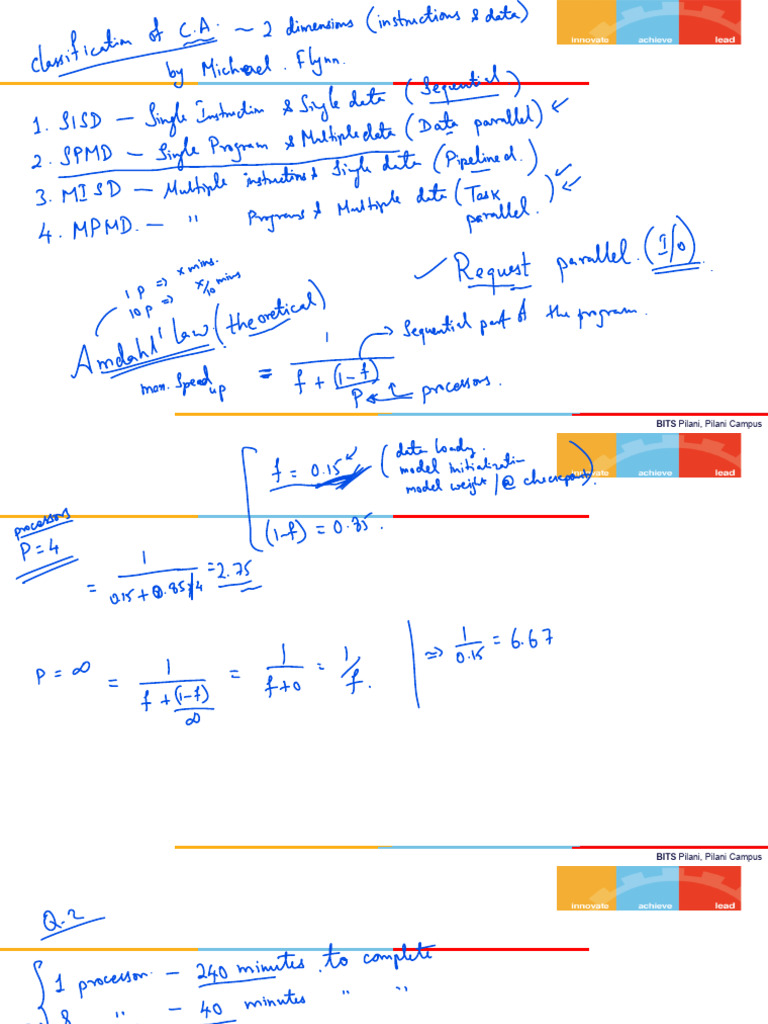 Classification of C.A. ~ 2 dimensions (instructions & data)
by Michael. Flynn.
innovate achieve lead
1. SISD — Single Instruction & Single data (Sequential)
2. SPMD — Single Program & Multiple data (Data parallel)
3. MISD — Multiple instructions & Single data (Pipelined.)
4. MPMD. — " Programs & Multiple data (Task parallel.)
✓ Request parallel. (I/O)
1 p => x mins.
10 p => x/10 mins
Amdahl' Law (theoretical)
max. Speed up = 1 / (f + (1-f)/P)
→ Sequential part of the program.
processors.
BITS Pilani, Pilani Campus
innovate achieve lead
f = 0.15 (data loading.
model initialization
model weight / @ checkpoints).
(1-f) = 0.85.
processors
P = 4
= 1 / (0.15 + 0.85/4) = 2.75
P = ∞ = 1 / (f + (1-f)/∞) = 1 / (f+0) = 1/f.
=> 1/0.15 = 6.67
BITS Pilani, Pilani Campus
innovate achieve lead
Q.2
1 processor. — 240 minutes to complete
8 " — 40 minutes " "